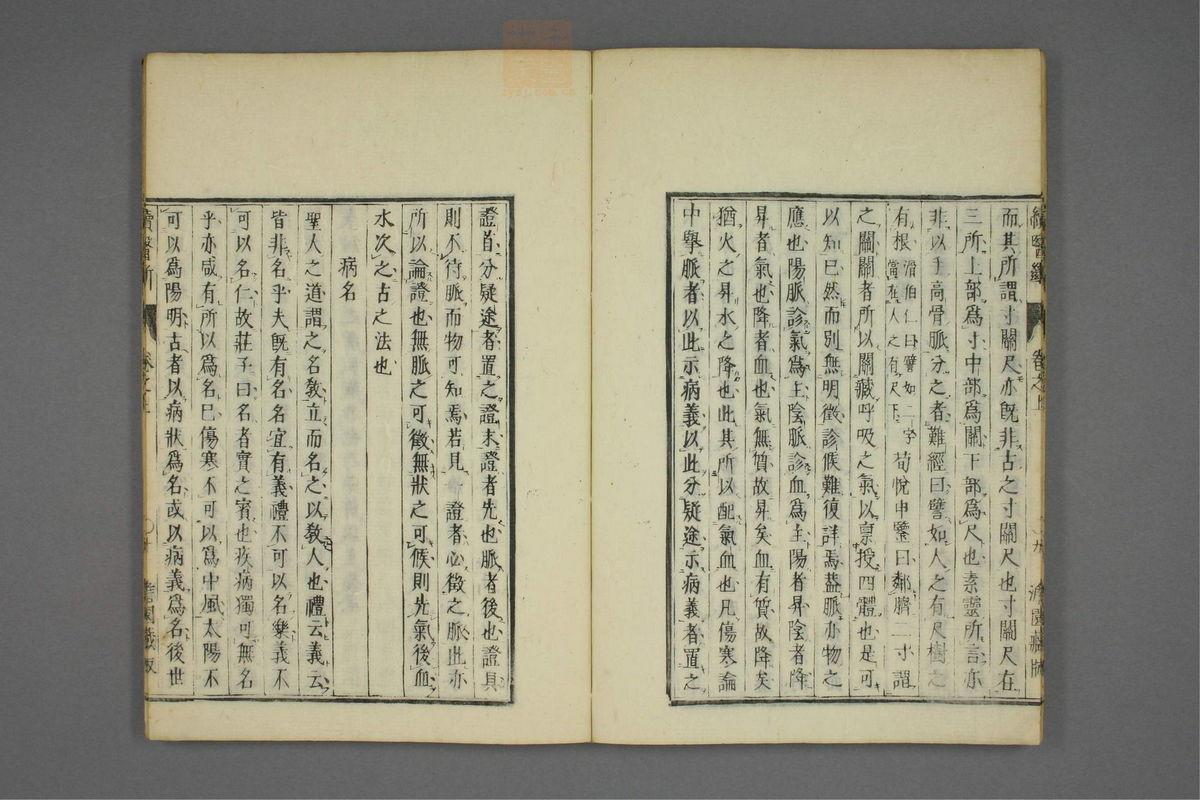 而其所謂寸關尺亦既非古之寸關尺也寸關尺在
三所上部爲寸中部爲關下部爲尺也素靈所言亦
非以手高骨脈分之者難經曰譬如人之有尺樹之
有根滑伯仁曰譬如二字當在人之有尺下荀悅申鑒曰鄰臍二寸謂
之關關者所以關藏呼吸之氣以稟授四體也是可
以知已然而別無明徵診候難復詳焉蓋脈亦物之
應也陽脈診氣爲主陰脈診血爲主陽者昇陰者降
昇者氣也降者血也氣無質故昇矣血有質故降矣
猶火之昇水之降也此其所以配氣血也凡傷寒論
中擧脈者以此示病義以此分疑途示病義者置之
證首分疑途者置之證末證者先也脈者後也證具
則不待脈而物可知焉若見證者必徵之脈此亦
所以論證也無脈之可徵無狀之可候則先氣後血
水次之古之法也
病名
聖人之道謂之名教立而名之以教人也禮云義云
皆非名乎夫既有名名宜有義禮不可以名樂義不
可以名仁故莊子曰名者實之賓也疾病獨可無名
乎亦咸有所以爲名已傷寒不可以爲中風太陽不
可以爲陽明古者以病狀爲名或以病義爲名後世